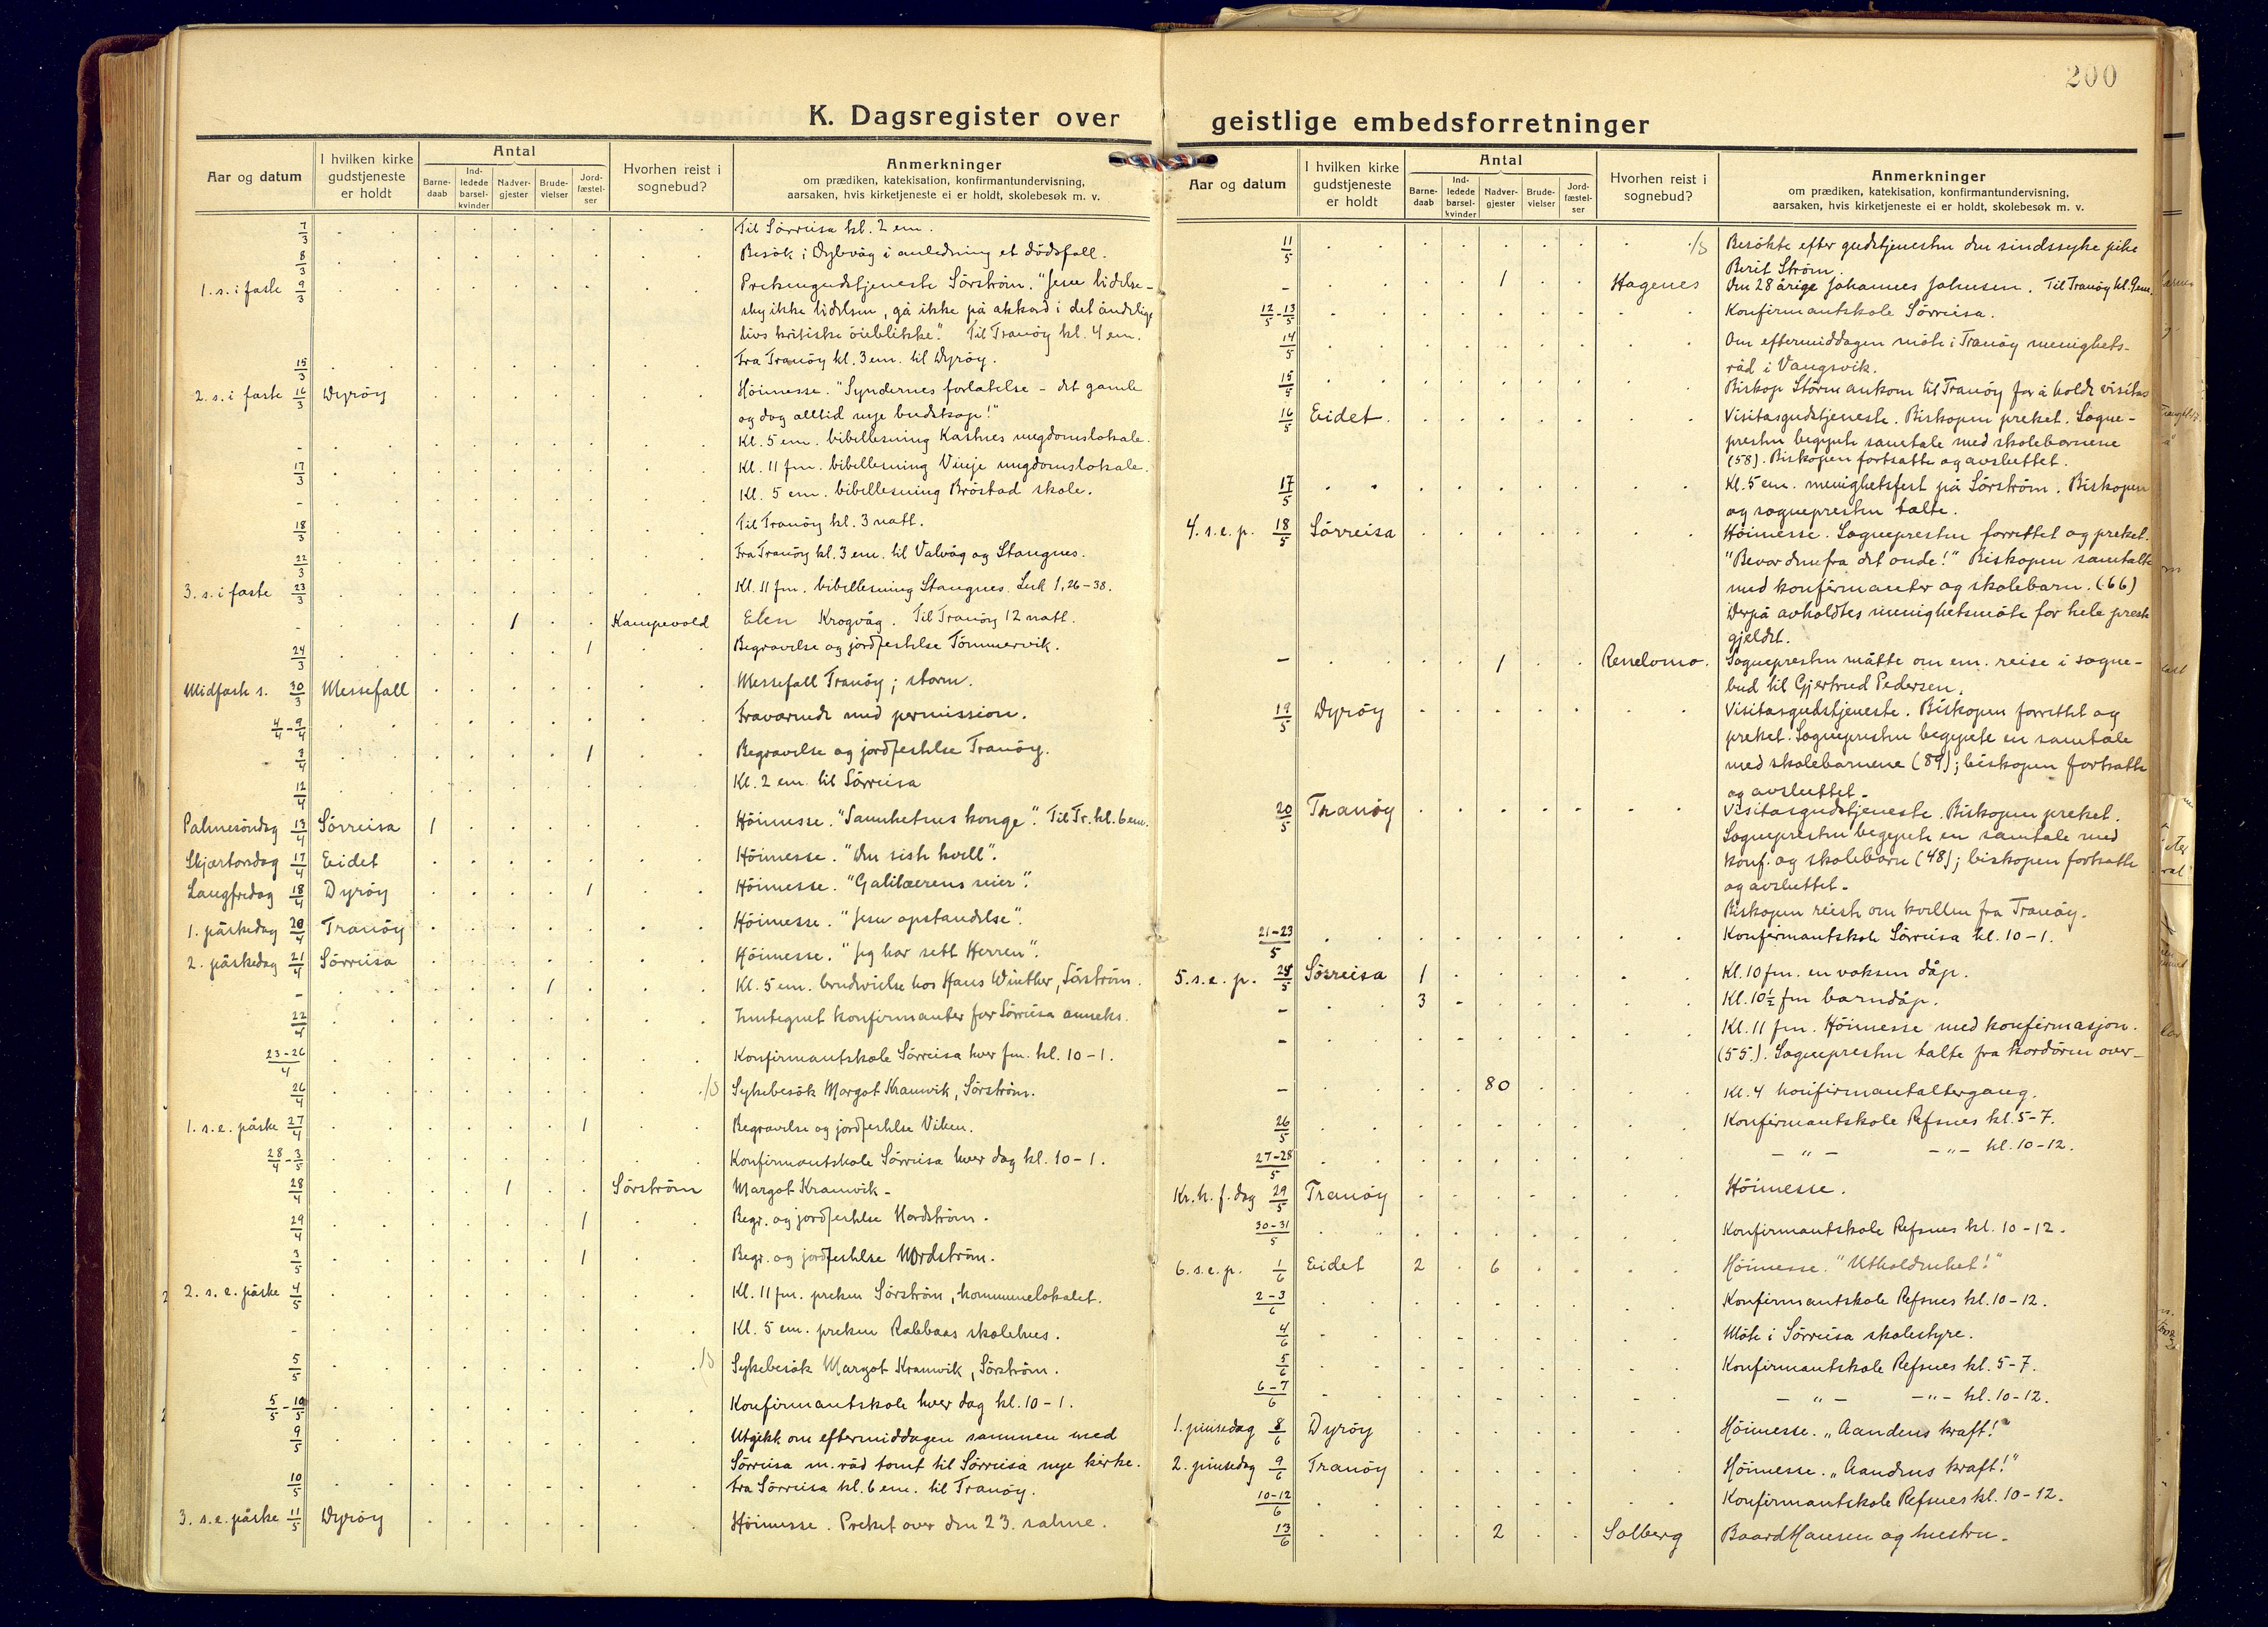 200
K. Dagsregister over
geistlige embedsforretninger
Aar og datum
I hvilken kirke gudstjeneste er holdt
Antal
Barne-daab
Ind-ledede barsel-kvinder
Nadver-gjester
Brude-vielser
Jord-fæstel-ser
Hvorhen reist i sognebud?
Anmerkninger
om prædiken, katekisation, konfirmantundervisning,
aarsaken, hvis kirketjeneste ei er holdt, skolebesøk m. v.
7/3 Til Sörreisa kl. 2 em.
8/3 Besök i Dybvåg i anledning et dödsfall.
1. s. i faste 9/3 Prekengudstjeneste Sörström. "Jesu lidelse -
sky ikke lidelsen, gå ikke på akkord i det åndelige
livs kritiske öieblikke". Til Tranöy kl. 4 em.
15/3 Fra Tranöy kl. 3 em. til Dyröy.
2. s. i faste 16/3 Dyröy Höimesse. "Syndernes forlatelse - det gamle
og dog alltid nye budskap!"
- Kl. 5 em. bibellesning Kastnes ungdomslokale.
17/3 Kl. 11 fm. bibellesning Vinje ungdomslokale.
- Kl. 5 em. bibellesning Bröstad skole.
18/3 Til Tranöy kl. 3 natt.
22/3 Fra Tranöy kl. 3 em. til Valvåg og Stangnes.
3. s. i faste 23/3 Kl. 11 fm. bibellesning Stangnes. Luk 1, 26-38.
- 1 Kampevold Elen Krogvåg. Til Tranöy 12 natt.
24/3 1 Begravelse og jordfestelse Tömmervik.
Midfaste s. 30/3 Messefall Messefall Tranöy; storm.
4/4 - 9/4 Fraværende med permission.
3/4 1 Begravelse og jordfestelse Tranöy.
12/4 Kl. 2 em. til Sörreisa
Palmesöndag 13/4 Sörreisa 1 Höimesse. "Sannhetens konge". Til Tr. kl. 6 em.
Skjærtorsdag 17/4 Eidet Höimesse. "Den siste kvell".
Langfredag 18/4 Dyröy 1 Höimesse. "Galilæerens seier".
1. påskedag 20/4 Tranöy Höimesse. "Jesu opstandelse".
2. påskedag 21/4 Sörreisa Höimesse. "Jeg har sett Herren".
- 1 Kl. 5 em. brudevielse hos Hans Winther, Sörström.
22/4 Inntegnet konfirmanter for Sörreisa anneks.
23-26/4 Konfirmantskole Sörreisa hver fm. kl. 10-1.
26/4 /S Sykebesök Margot Kramvik, Sörström.
1. s. e. påske 27/4 1 Begravelse og jordfestelse Viken.
28/4 - 3/5 Konfirmantskole Sörreisa hver dag kl. 10-1.
28/4 1 Sörström Margot Kramvik -
29/4 1 Begr. og jordfestelse Nordström.
3/5 1 Begr. og jordfestelse Nordström.
2. s. e. påske 4/5 Kl. 11 fm. preken Sörström, kommunelokalet.
- Kl. 5 em. preken Rabbaas skolehus.
5/5 /S Sykebesök Margot Kramvik, Sörström.
5/5 - 10/5 Konfirmantskole hver dag kl. 10-1.
9/5 Utgikk om eftermiddagen sammen med
Sörreisa m. råd tomt til Sörreisa nye kirke.
10/5 Fra Sörreisa kl. 6 em. til Tranöy.
3. s. e. påske 11/5 Dyröy Höimesse. Preket over den 23. salme.
Aar og datum
I hvilken kirke gudstjeneste er holdt
Antal
Barne-daab
Ind-ledede barsel-kvinder
Nadver-gjester
Brude-vielser
Jord-fæstel-ser
Hvorhen reist i sognebud?
Anmerkninger
om prædiken, katekisation, konfirmantundervisning,
aarsaken, hvis kirketjeneste ei er holdt, skolebesøk m. v.
11/5 /S Besökte efter gudstjenesten den sindssyke pike
Berit Ström.
- 1 Hagenes Den 28 årige Johannes Johnsen. Til Tranöy kl. 9 em.
12/5 - 13/5 Konfirmantskole Sörreisa.
14/5 Om eftermiddagen möte i Tranöy menighets-
råd i Vangsvik.
15/5 Biskop Störm ankom til Tranöy for å holde visitas
16/5 Eidet. Visitasgudstjeneste. Biskopen preket. Sogne-
presten begynte samtale med skolebarnene
(58). Biskopen fortsatte og avsluttet.
17/5 Kl. 5 em. menighetsfest på Sörström. Biskopen
og sognepresten talte.
4. s. e. p. 18/5 Sörreisa Höimesse. Sognepresten forrettet og preket.
"Bevar dem fra det onde!" Biskopen samtalte
med konfirmanter og skolebarn. (66)
Derpå avholdtes menighetsmöte for hele preste
gjeldet.
- 1 Renelvmo. Sognepresten måtte om em. reise i sogne-
bud til Gjertrud Pedersen.
19/5 Dyröy Visitasgudstjeneste. Biskopen forrettet og
preket. Sognepresten begynte en samtale
med skolebarnene (89); biskopen fortsatte
og avsluttet.
20/5 Tranöy Visitasgudstjeneste. Biskopen preket.
Sognepresten begynte en samtale med
konf. og skolebarn (48); biskopen fortsatte
og avsluttet -
Biskopen reiste om kvellen fra Tranöy.
21-23/5 Konfirmantskole Sörreisa kl. 10-1.
5. s. e. p. 25/5 Sörreisa 1 Kl. 10 fm. en voksen dåp.
- 3 Kl. 10½ fm barnedåp.
- Kl. 11 fm. Höimesse med konfirmasjon.
(55). Sognepresten talte fra kordören over -
- 80 Kl. 4 konfirmantaltergang.
26/5 Konfirmantskole Refsnes kl. 5-7.
27-28/5 - " - - " - kl. 10-12.
Kr. h. f. dag 29/5 Tranöy Höimesse.
30-31/5 Konfirmantskole Refsnes kl. 10-12.
6. s. e. p. 1/6 Eidet 2 6 Höimesse. "Utholdenhet!"
2-3/6 Konfirmantskole Refsnes kl. 10-12.
4/6 Möte i Sörreisa skolestyre.
5/6 Konfirmantskole Refsnes kl. 5-7.
6-7/6 - " - - " - kl. 10-12.
1. pinsedag 8/6 Dyröy Höimesse. „Aandens kraft!"
2. pinsedag 9/6 Tranöy Höimesse. „Aandens kraft!"
10-12/6 Konfirmantskole Refsnes kl. 10-12.
13/6 2 Solberg Baard Hansen og hustru -